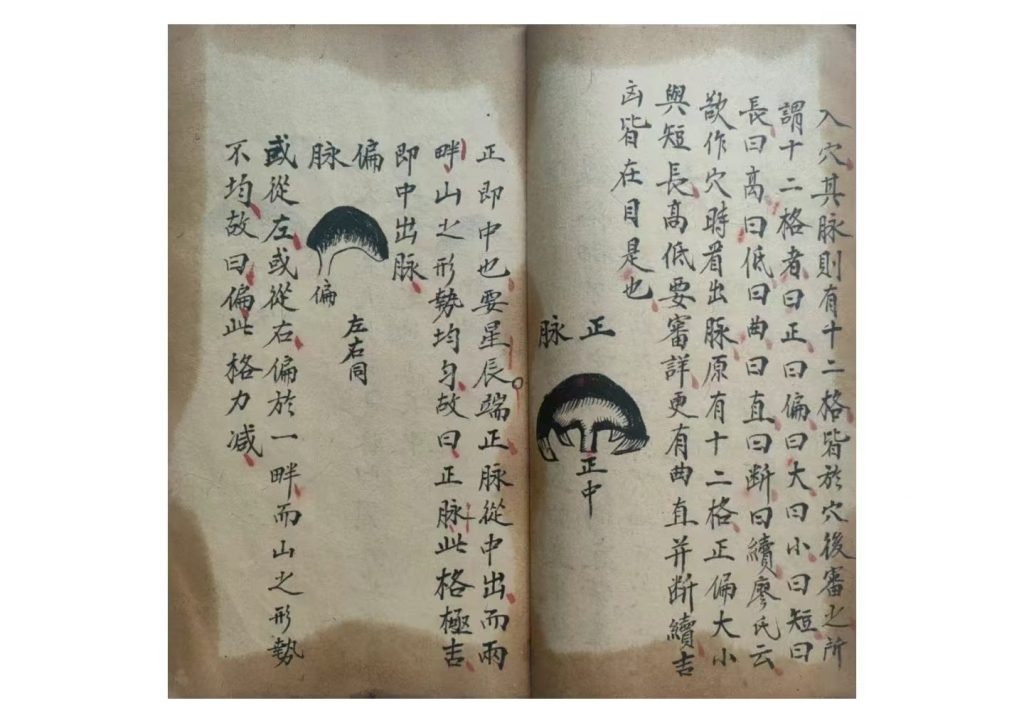 入穴其脉則有十二格皆於穴後審之所
謂十二格者曰正曰偏曰大曰小曰短曰
長曰高曰低曰曲曰直曰断曰續廖氏云
欲作穴時看出脉原有十二格正偏大小
與短長高低要審詳更有曲直并断續吉
凶皆在目是也
正脉
正中
正即中也要星辰端正脉從中出而兩
畔山之形勢均匀故曰正脉此格極吉
即中出脉
偏脉
偏
左右同
或從左或從右偏於一畔而山之形勢
不均故曰偏此格力减